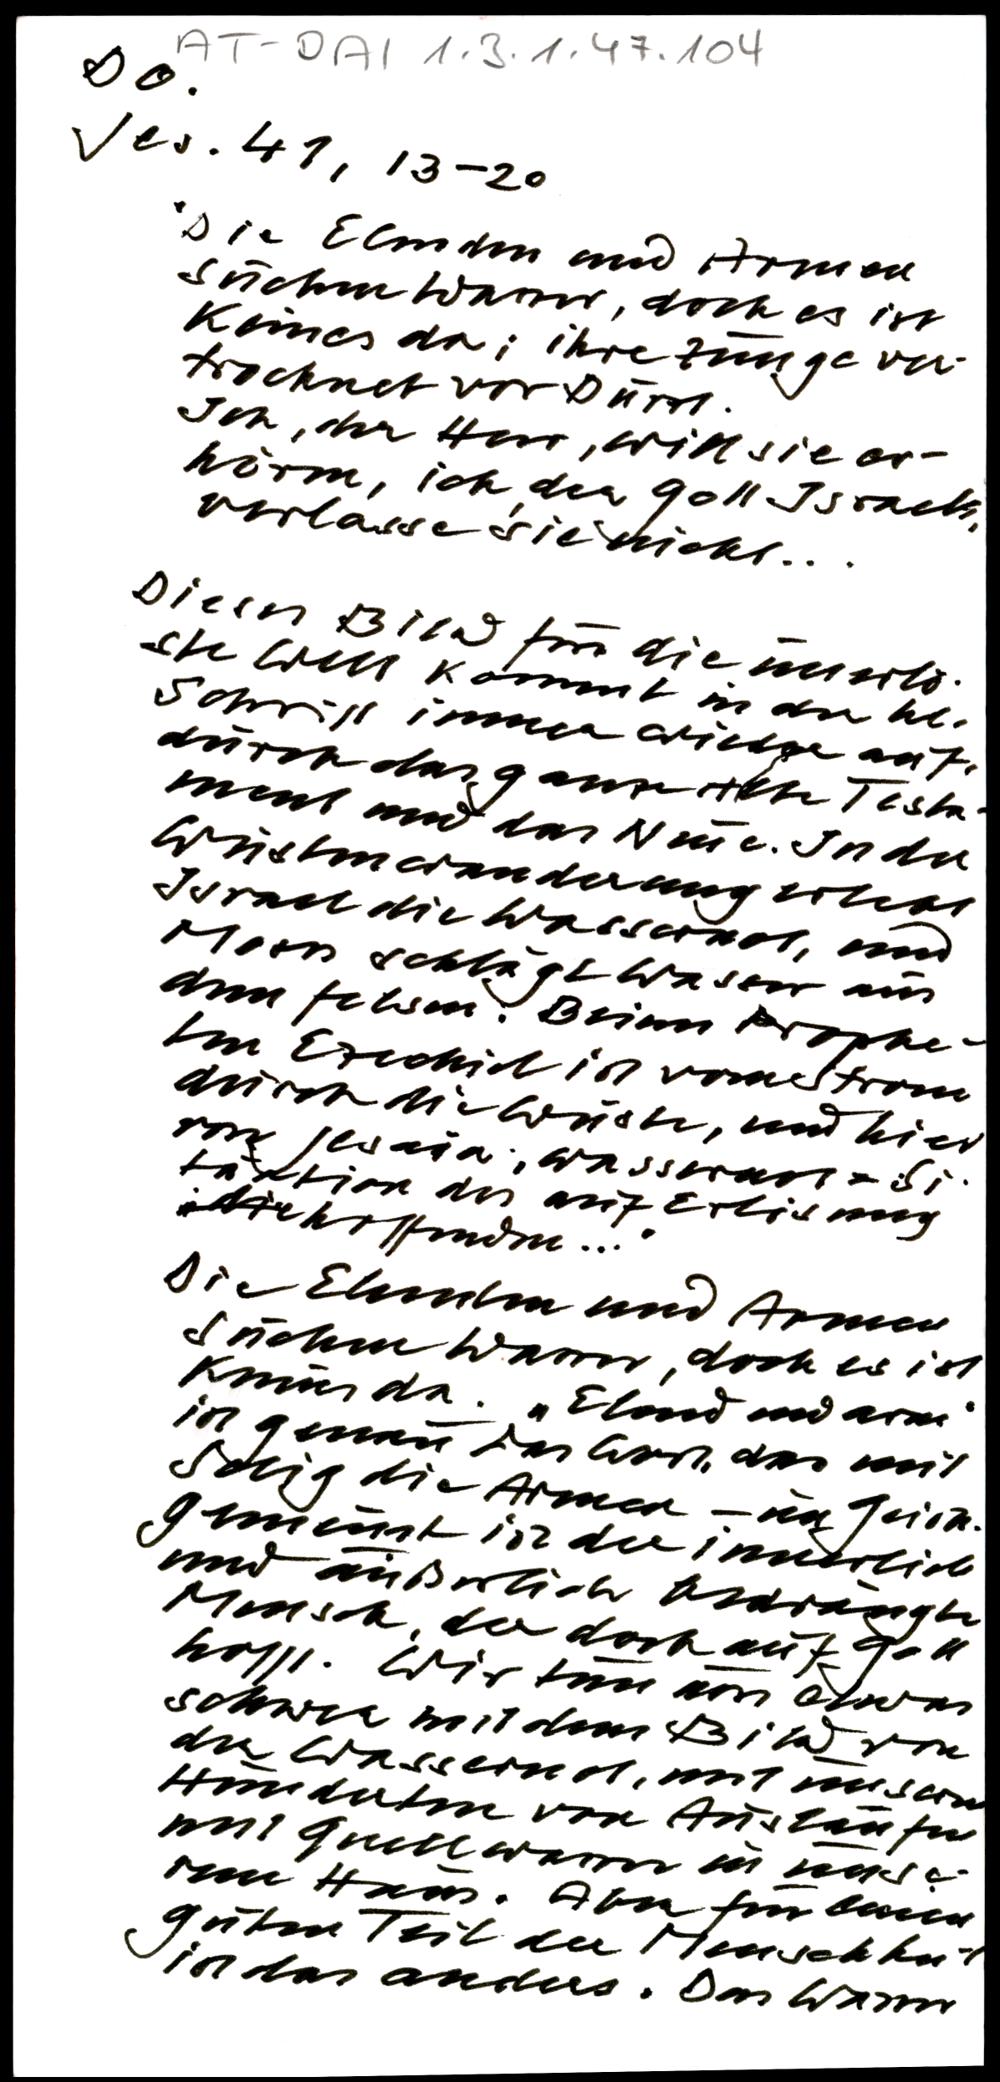 AT-DAI 1.3.1.47.104
Do.
Jes. 41, 13-20
"Die Elenden und Armen
suchen Wasser, doch es ist
keines da; ihre Zunge ver-
trocknet vor Durst.
Ich, der Herr, will sie er-
hören, ich, der Gott Israels,
verlasse sie nicht...
Dieses Bild für die unerlö-
ste Welt kommt in der hl.
Schrift immer wieder auf,
durch das ganze Alte Testa-
ment und das Neue. In der
Wüstenwanderung erlebt
Israel die Wassernot, und
Moses schlägt Wasser aus
dem Felsen. Beim Prophe-
ten Ezechiel ist vom Strom
durch die Wüste, und hier
von Jesaia: Wassernot = Si-
tuation der auf Erlösung
hoffenden..."
Die Elenden und Armen
suchen Wasser, doch es ist
keines da. "Elend und arm"
ist genau das Wort, das mit
Selig die Armen – im Geist.
gemeint ist der innerlich
und äußerlich bedrängte
Mensch, der doch auf Gott
hofft. Wir tun uns etwas
schwer mit dem Bild von
der Wassernot, mit unseren
Hunderten von Ausläufen
mit Quellwasser in unse-
rem Haus. Aber für einen
guten Teil der Menschheit
ist das anders. Das Wasser